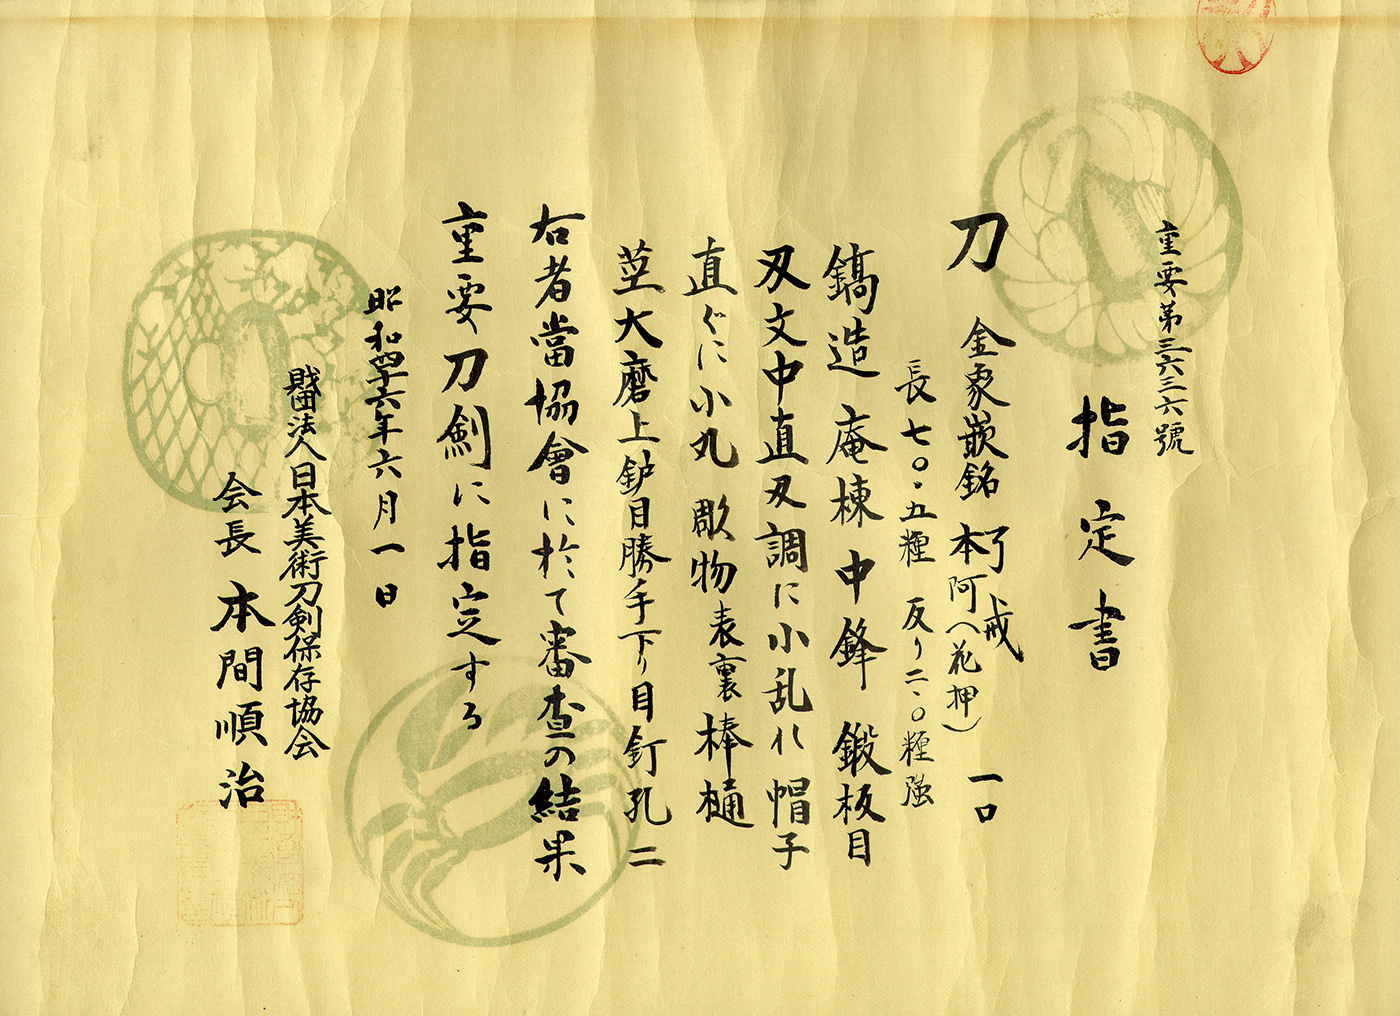 重要第三六三六號
指定書
刀 金象嵌銘 了戒 本阿(花押) 一口
長七〇・五糎 反り二・〇糎强
鎬造 庵棟 中鋒 鍛板目
刄文中直刄調に小乱れ 帽子
直ぐに小丸 彫物 表裏 棒樋
茎大磨上 鈩目勝手下り 目釘孔二
右者當協會に於て審査の結果
重要刀剣に指定する
昭和四十六年六月一日
財団法人日本美術刀剣保存協会
会長 本間順治